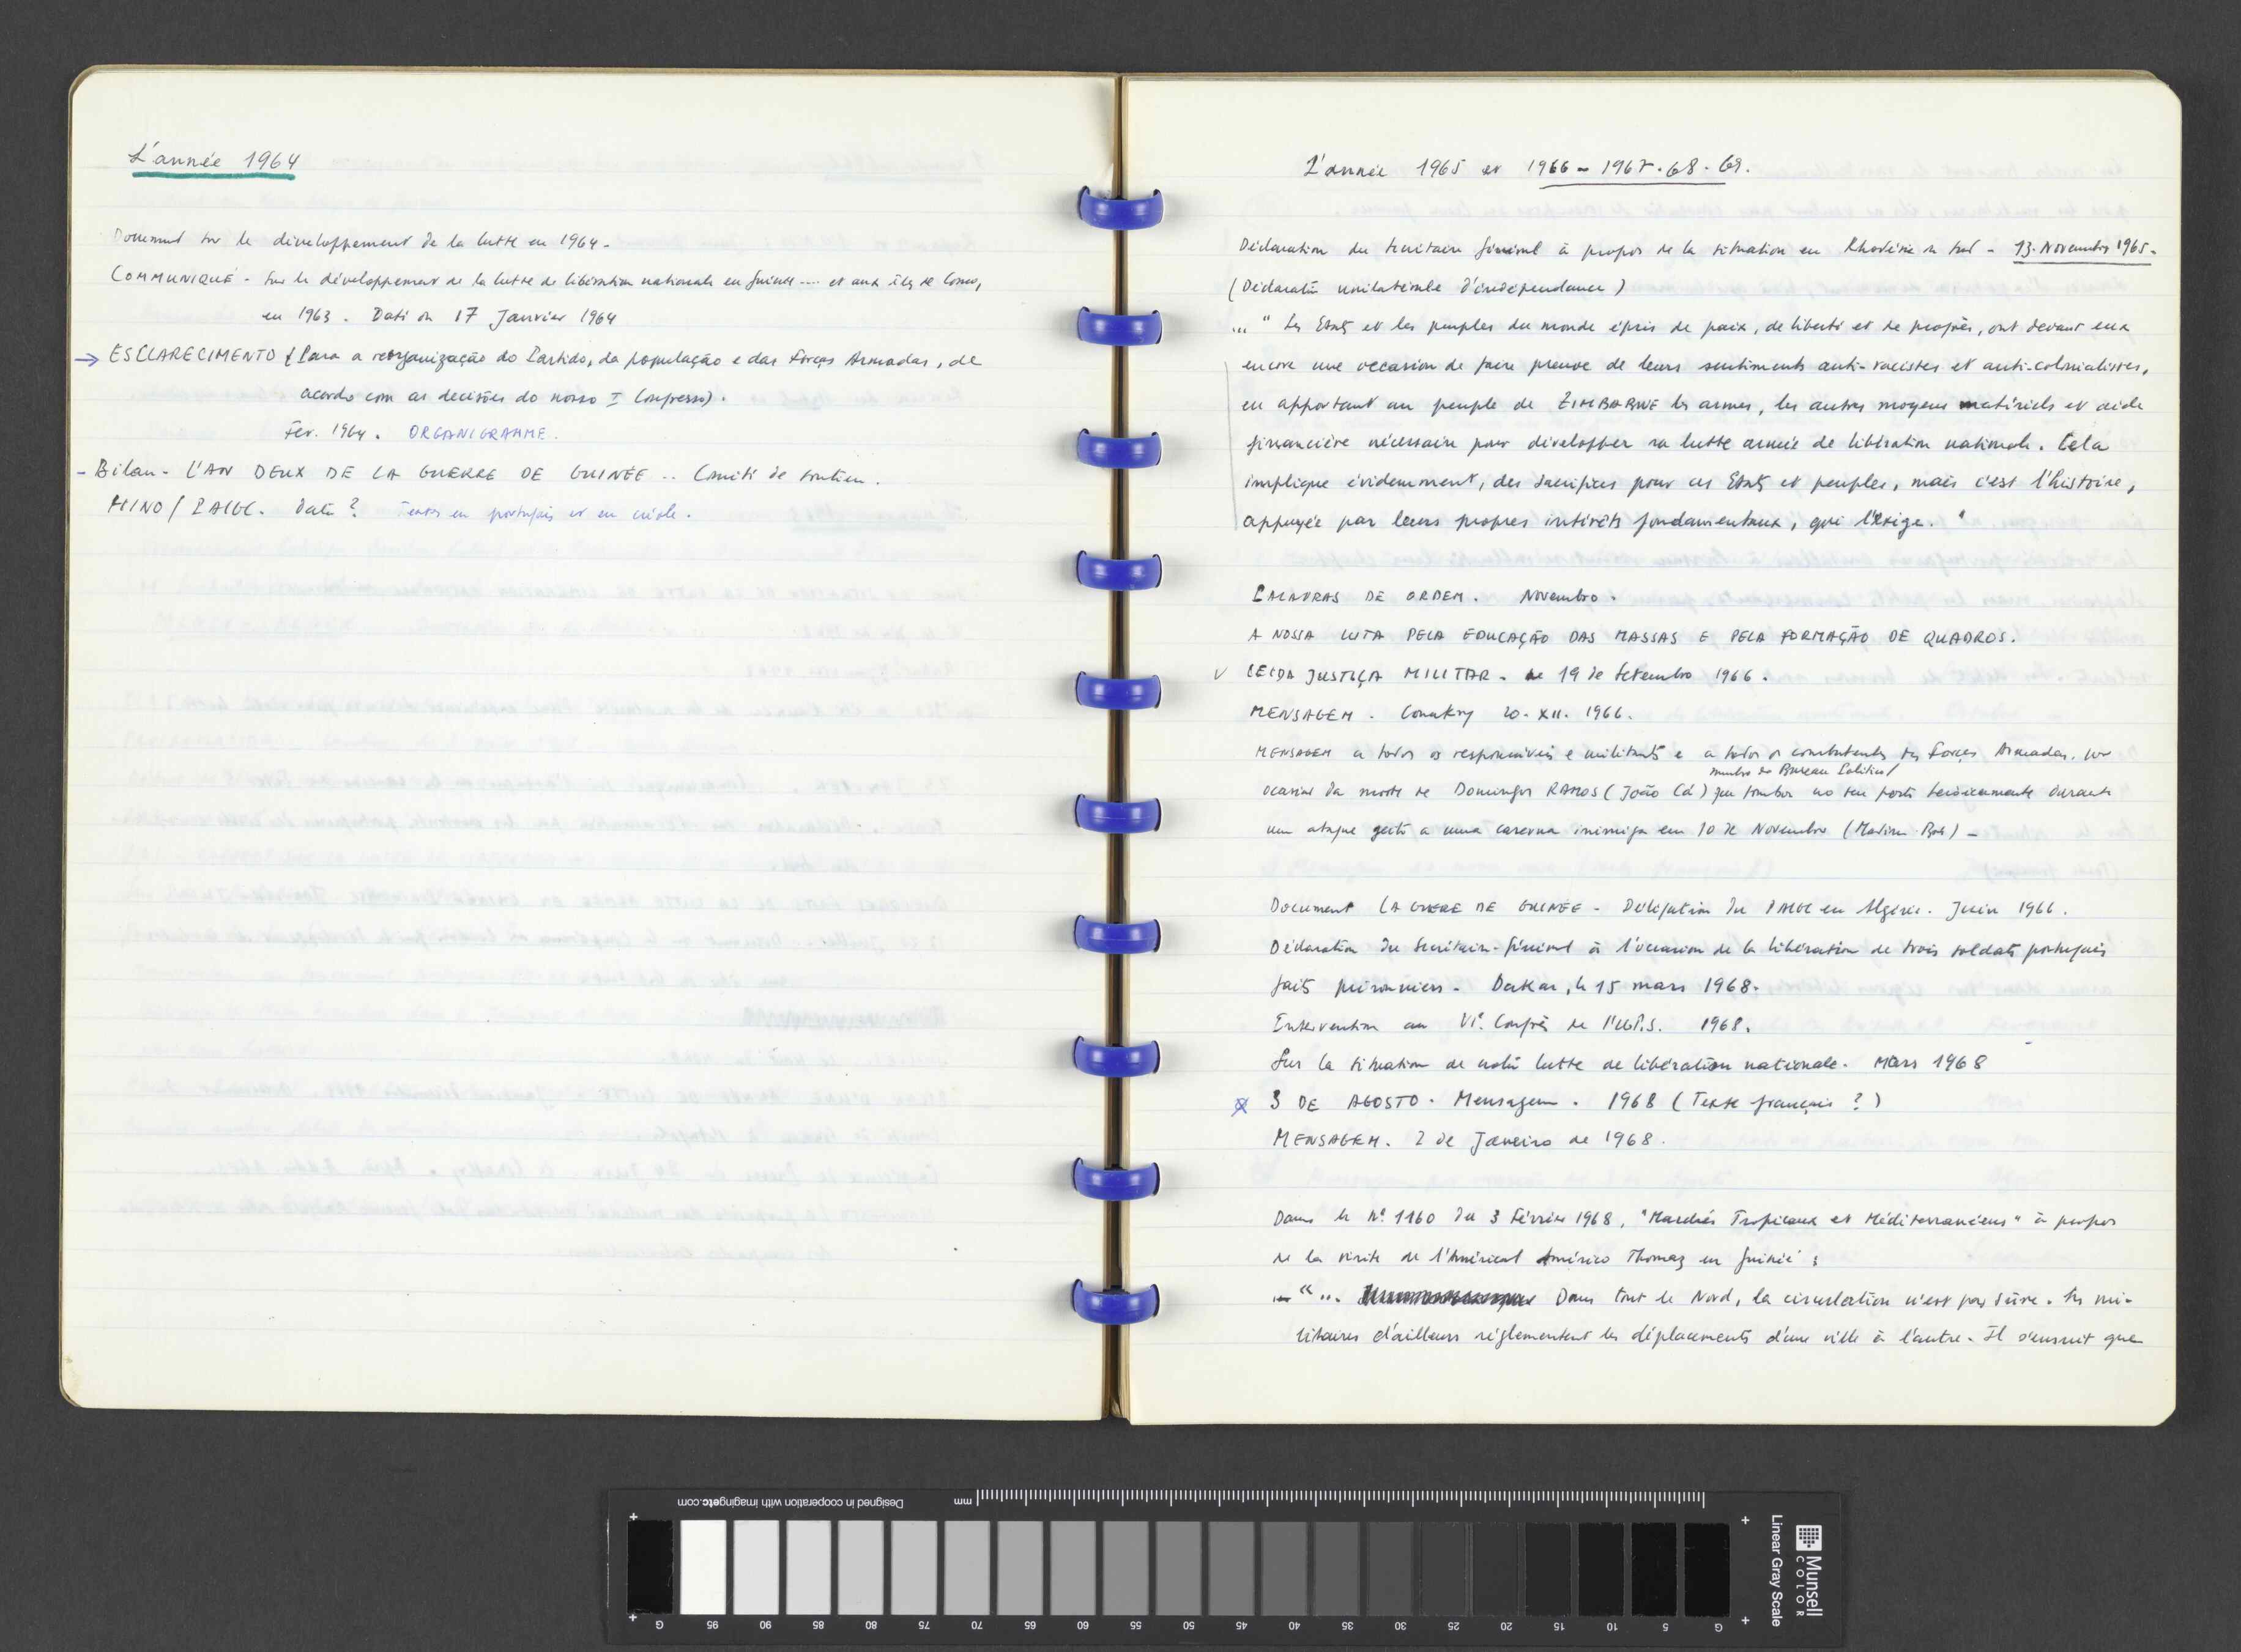 L'année 1964
Document sur le développement de la lutte en 1964 -
COMMUNIQUÉ - Sur le développement de la lutte de libération nationale en Guinée .... et aux îles
en 1963. Daté du 17 Janvier 1964
→ ESCLARECIMENTO (Para a reorganização do Partido, da população e das Forças Armadas, de
acordo com as decisões do nosso I Congresso).
Fev. 1964. ORGANIGRAMME.
- Bilan - L'AN DEUX DE LA GUERRE DE GUINÉE .. Comité de soutien.
MINO / PAIGC. Date ? Textes en portugais et en créole.
L'année 1965 et 1966 - 1967. 68. 69.
Déclaration du Secrétaire Général à propos de la situation en Rhodésie du Sud - 13. Novembre 1965 -
(Déclaration unilatérale d'indépendance)
... " Les Etats et les peuples du monde épris de paix, de liberté et de progrès, ont devant eux
encore une occasion de faire preuve de leurs sentiments anti-racistes et anti-colonialistes,
en apportant au peuple de ZIMBABWE les armes, les autres moyens matériels et aide
financière nécessaire pour développer sa lutte armée de libération nationale. Cela
implique évidemment, des sacrifices pour ces Etats et peuples, mais c'est l'histoire,
appuyée par leurs propres intérêts fondamentaux, qui l'exige. "
PALAVRAS DE ORDEM. Novembro.
A NOSSA LUTA PELA EDUCAÇÃO DAS MASSAS E PELA FORMAÇÃO DE QUADROS.
v LEI DA JUSTIÇA MILITAR - de 19 de Setembro 1966.
MENSAGEM. Conakry 20. XII. 1966.
MENSAGEM a todos os responsáveis e militantes e a todos os combatentes das Forças Armadas, por
membro do Bureau Político /
ocasião da morte de Domingos RAMOS (João Cá) que tombou no seu posto heroicamente durante
um ataque feito a uma caserna inimiga em 10 de Novembro (Madina Boé) -
Document LA GUERRE DE GUINÉE - Délégation du PAIGC en Algérie. Juin 1966.
Déclaration du Secrétaire-Général à l'occasion de la libération de trois soldats portugais
faits prisonniers - Dakar, le 15 mars 1968.
Intervention au VIe. Congrès de l'U.P.S. 1968.
Sur la situation de notre lutte de libération nationale. Mars 1968
3 DE AGOSTO. Mensagem. 1968 (Texte français ?)
MENSAGEM. 2 de Janeiro de 1968.
Dans le Nº 1160 du 3 Février 1968, "Marchés Tropicaux et Méditerranéens" à propos
de la visite de l'Amiral Américo Thomaz en Guinée :
- " ... Dans tout le Nord, la circulation n'est pas sûre. Les mi-
litaires d'ailleurs réglementent les déplacements d'une ville à l'autre. Il s'ensuit que
Designed in cooperation with imagingetc.com
mm
Munsell
COLOR
Linear Gray Scale
G 95 90 85 80 75 70 65 60 55 50 45 40 35 30 25 20 15 10 5 G